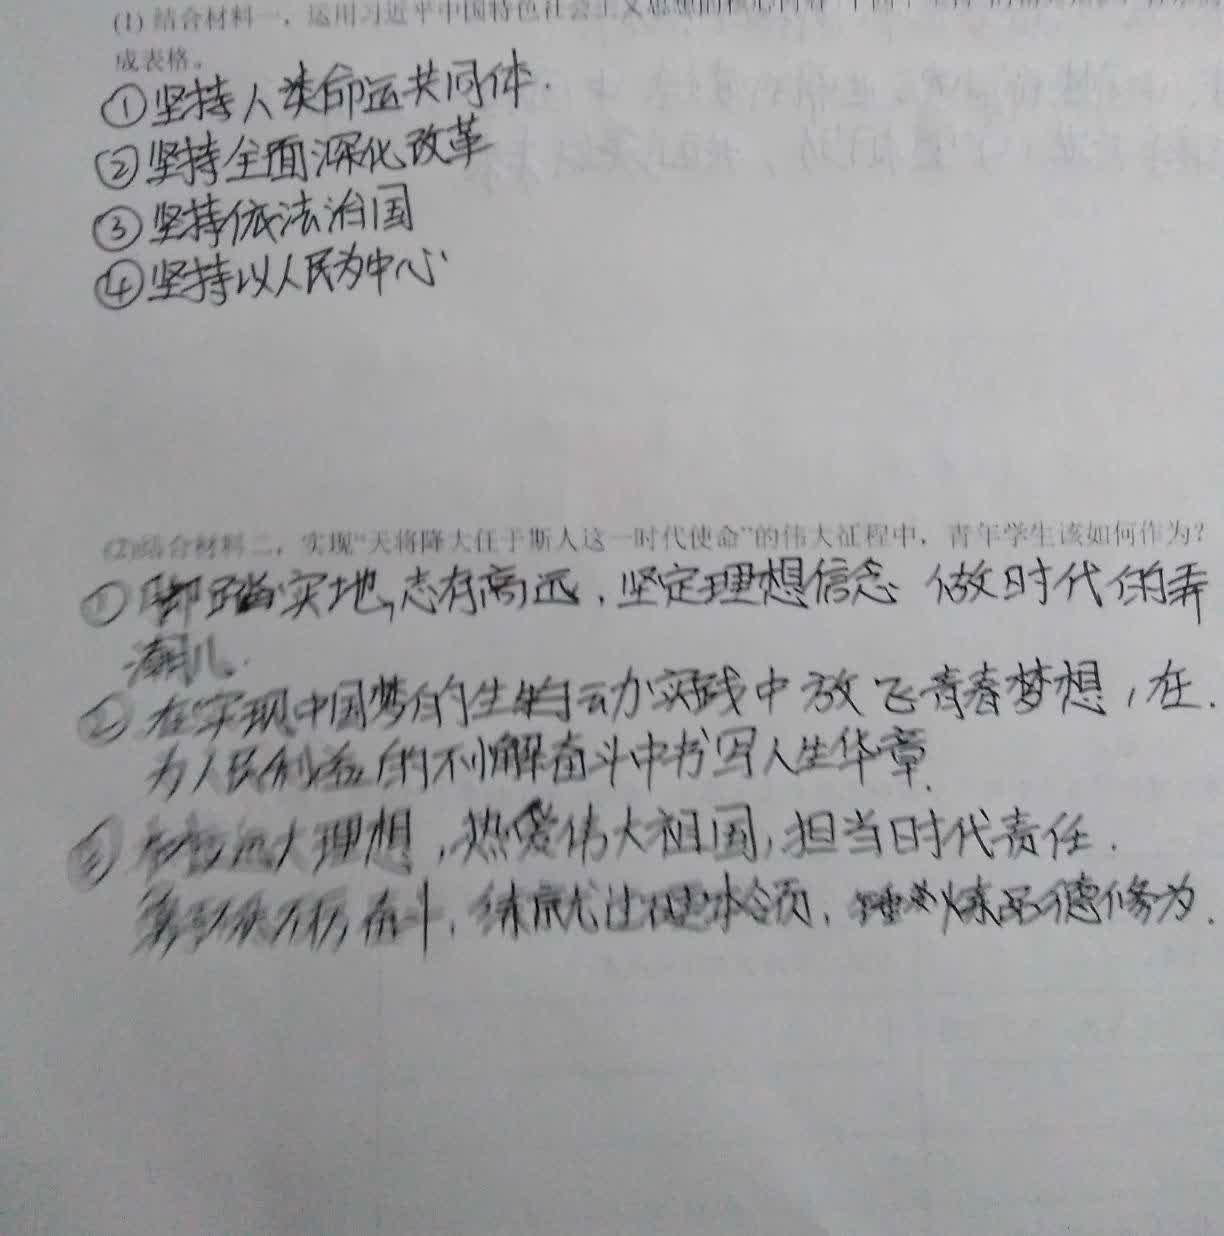 (1) 结合材料一，运用习近平中国特色社会主义思想的核心内容"十四个坚持"的相关知识，
成表格。
①坚持人类命运共同体.
②坚持全面深化改革
③坚持依法治国
④坚持以人民为中心
(2)结合材料二，实现"天将降大任于斯人这一时代使命"的伟大征程中，青年学生该如何作为?
①脚踏实地,志存高远,坚定理想信念 做时代的弄
潮儿.
②在实现中国梦的生的动实践中放飞青春梦想,在.
为人民利益的不懈奋斗中书写人生华章.
③树立远大理想,热爱伟大祖国,担当时代责任.
勇于砥砺奋斗,练就过硬本领,锤炼品德修为.